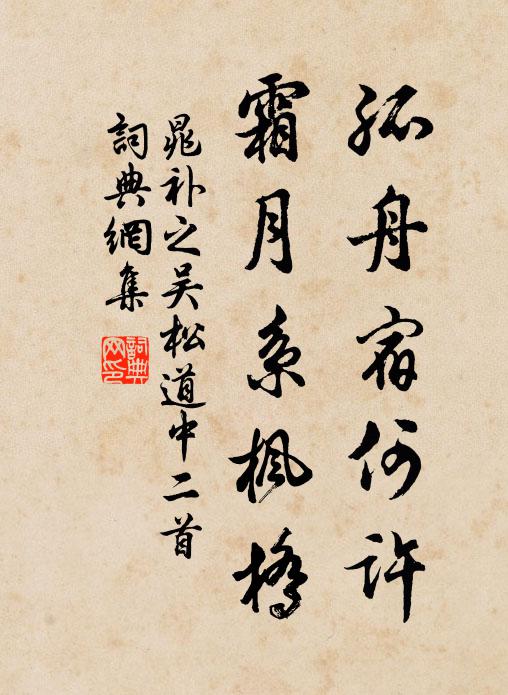 孤舟宿何許
霜月系楓橋
晁补之吴松道中二首
詞典網集
詞典网印